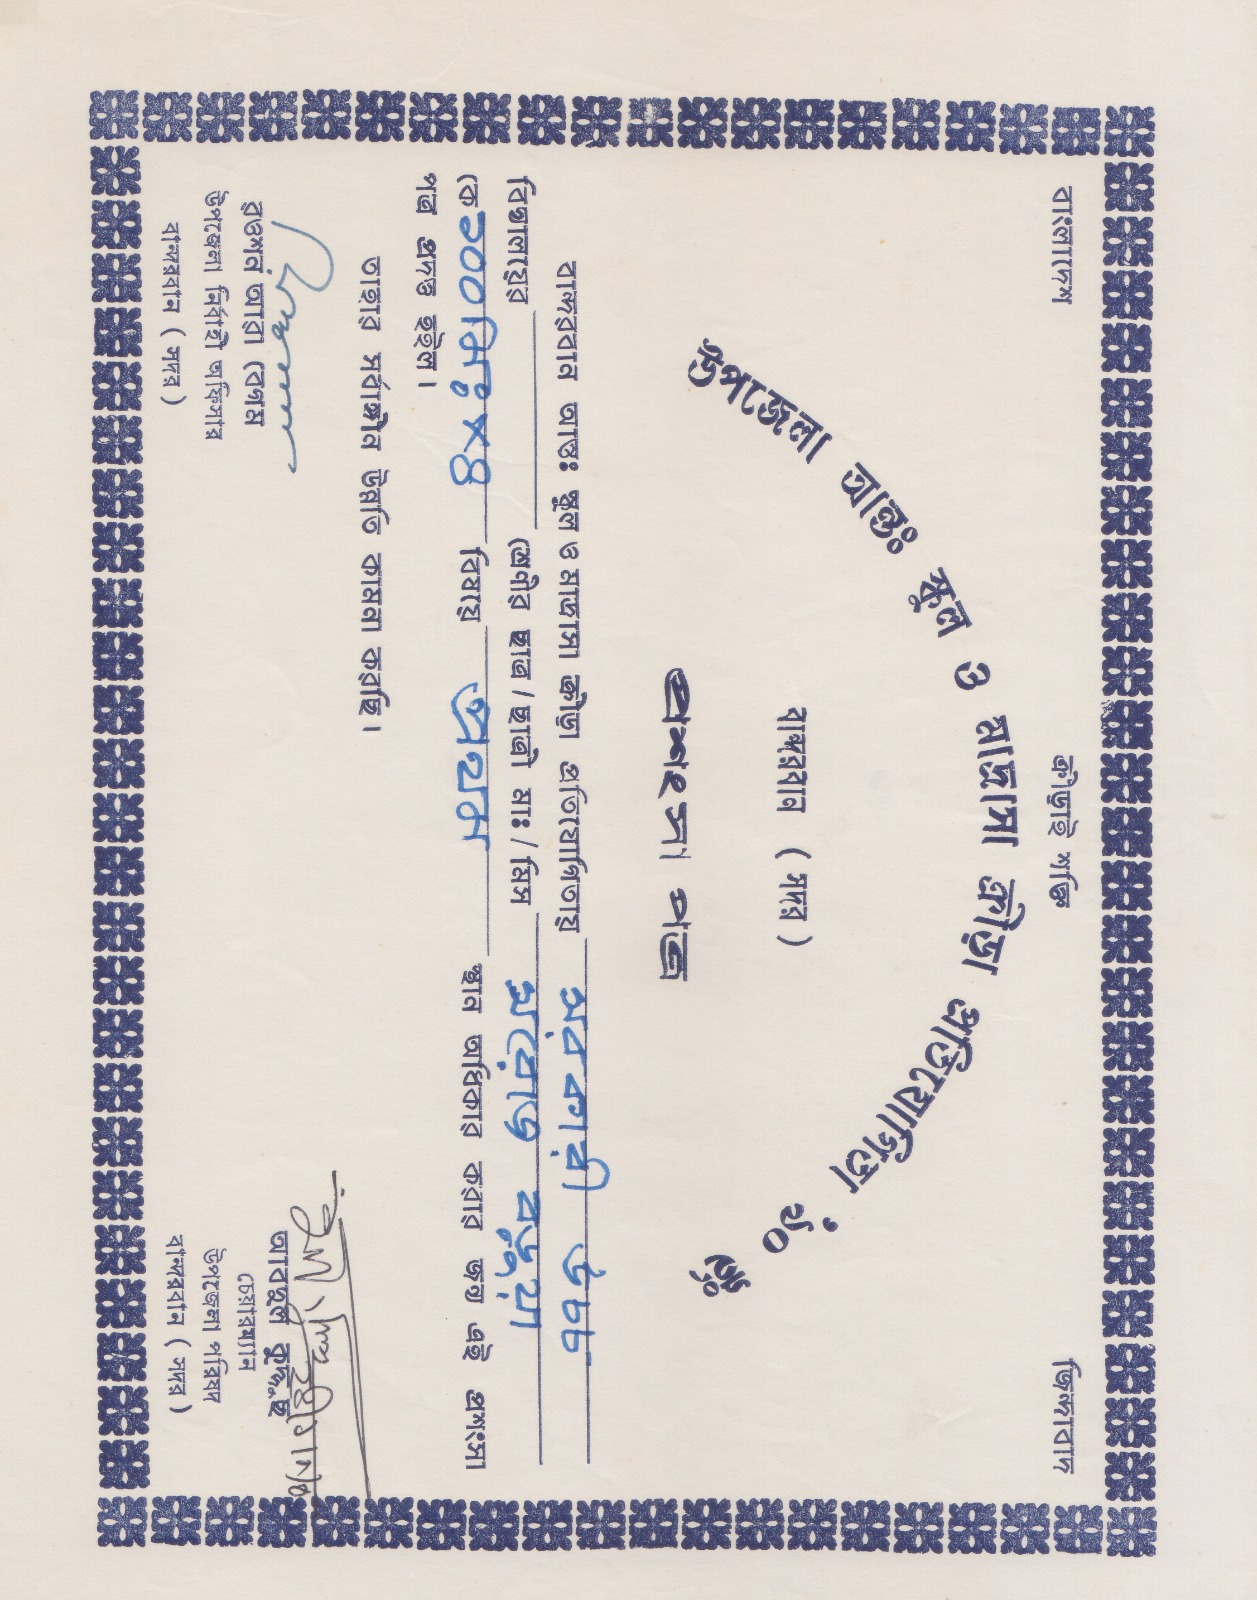 বাংলাদেশ ক্রীড়াই শক্তি জিন্দাবাদ
উপজেলা আন্তঃ স্কুল ও মাদ্রাসা ক্রীড়া প্রতিযোগিতা '৯০ ইং
বান্দরবান ( সদর )
প্রশংসা পত্র
বান্দরবান আন্তঃ স্কুল ও মাদ্রাসা ক্রীড়া প্রতিযোগিতায় সরকারী উচ্চ
বিদ্যালয়ের শ্রেণীর ছাত্র / ছাত্রী মাঃ / মিস সরোজ বড়ুয়া
কে ১০০ মিঃ × ৪ বিষয়ে প্রথম স্থান অধিকার করার জন্য এই প্রশংসা
পত্র প্রদত্ত হইল।
তাহার সর্বাঙ্গীন উন্নতি কামনা করছি।
রওশন আরা বেগম
উপজেলা নির্বাহী অফিসার
বান্দরবান ( সদর )
আবদুল কুদ্দুছ
চেয়ারম্যান
উপজেলা পরিষদ
বান্দরবান ( সদর )